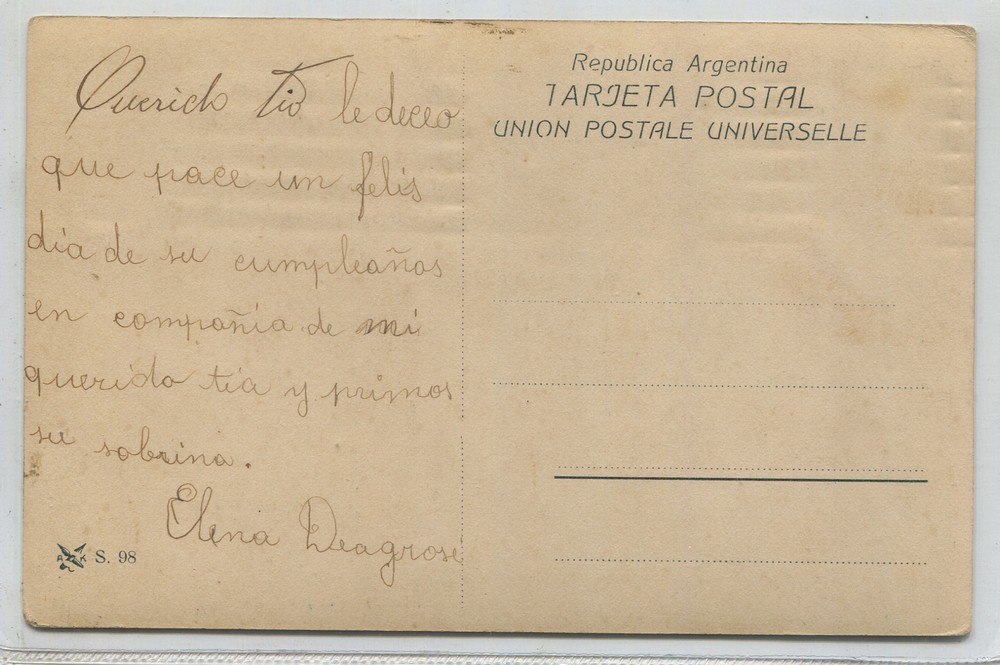 Querido Tio le deceo
que pace un felis
dia de su cumpleaños
en compañia de mi
querida tia y primos
su sobrina.
Elena Deagrose
S. 98
Republica Argentina
TARJETA POSTAL
UNION POSTALE UNIVERSELLE